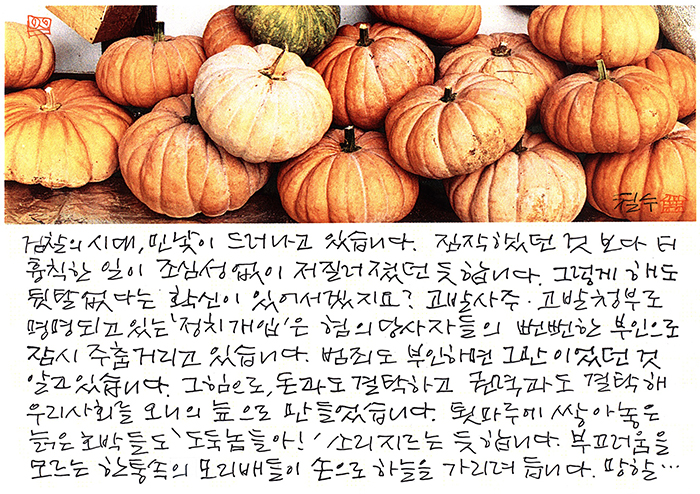 철수
검찰의 시대, 민낯이 드러나고 있습니다. 짐작하였던 것 보다 더
흉칙한 일이 조심성 없이 저질러졌던 듯 합니다. 그렇게 해도
뒷탈 없다는 확신이 있어서겠지요? 고발사주 · 고발청부로
명명되고 있는 '정치개입'은 혐의당사자들의 뻔뻔한 부인으로
잠시 주춤거리고 있습니다. 범죄도 부인하면 그만이었던 것
알고 있습니다. 그 힘으로, 돈과도 결탁하고 권력과도 결탁해
우리사회를 오니의 늪으로 만들었습니다. 툇마루에 쌓아놓은
늙은 호박들도 '도둑놈들아!' 소리지르는 듯 합니다. 부끄러움을
모르는 한통속의 모리배들이 손으로 하늘을 가리려 듭니다. 망할…